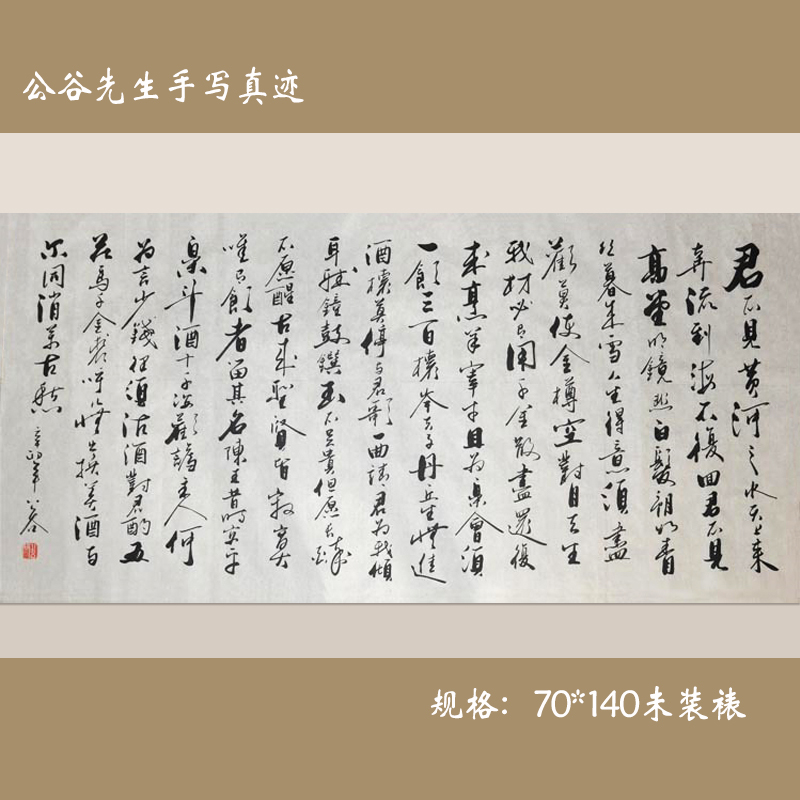 公谷先生手写真迹
君不見黄河之水天上来
奔流到海不復回君不見
高堂明鏡悲白髮朝如青
丝暮成雪人生得意須盡
歡莫使金樽空對月天生
我材必有用千金散盡還復
来烹羊宰牛且為樂會須
一飲三百杯岑夫子丹丘生將進
酒杯莫停与君歌一曲請君為我傾
耳聽鐘鼓饌玉不足貴但愿長醉
不愿醒古来聖賢皆寂寞
唯有飲者留其名陳王昔時宴平
樂斗酒十千恣歡謔主人何
為言少錢徑須沽酒對君酌五
花馬千金裘呼兒将出换美酒与
尔同消萬古愁 辛卯年 公谷
规格：70*140未装裱